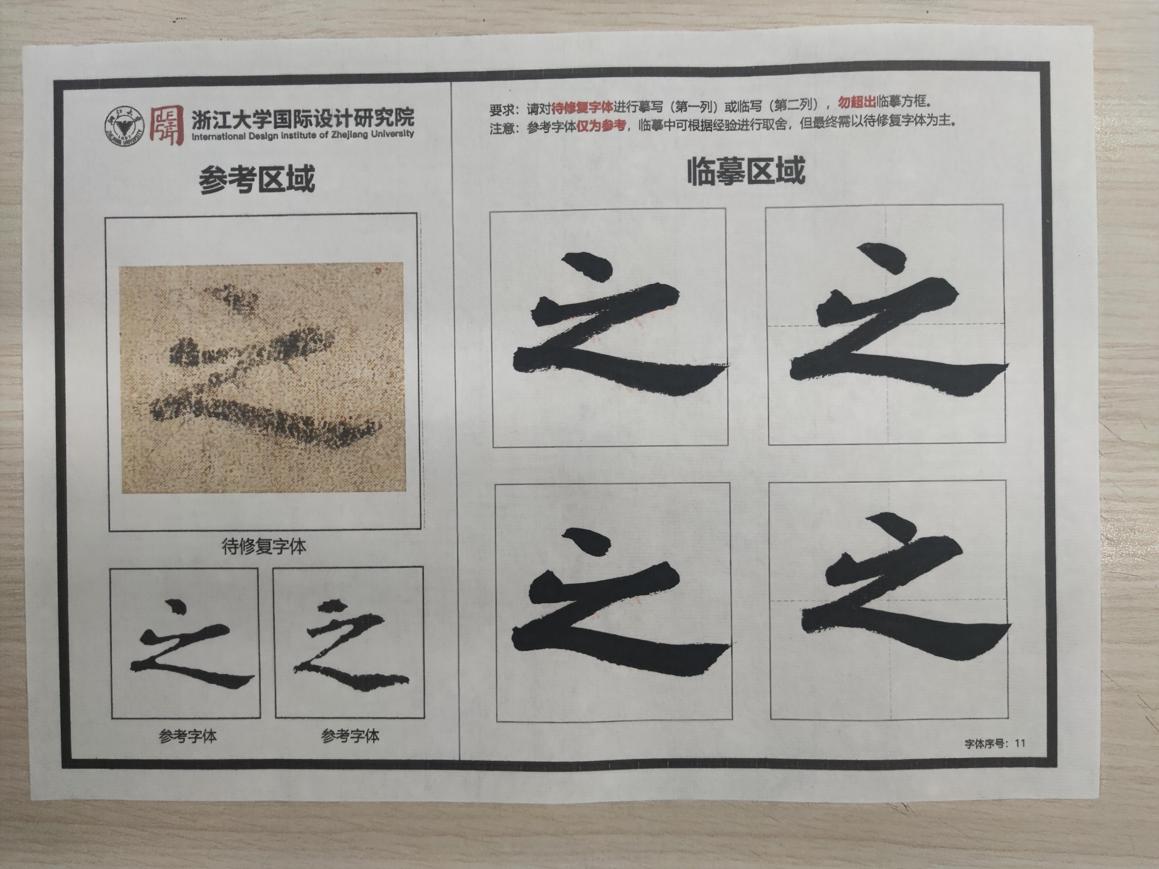 浙江大学国际设计研究院
International Design Institute of Zhejiang University
参考区域
之
待修复字体
之 之
参考字体 参考字体
要求：请对待修复字体进行摹写（第一列）或临写（第二列），勿超出临摹方框。
注意：参考字体仅为参考，临摹中可根据经验进行取舍，但最终需以待修复字体为主。
临摹区域
之 之
之 之
字体序号：11